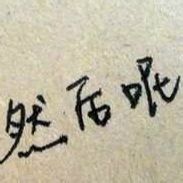 然后呢